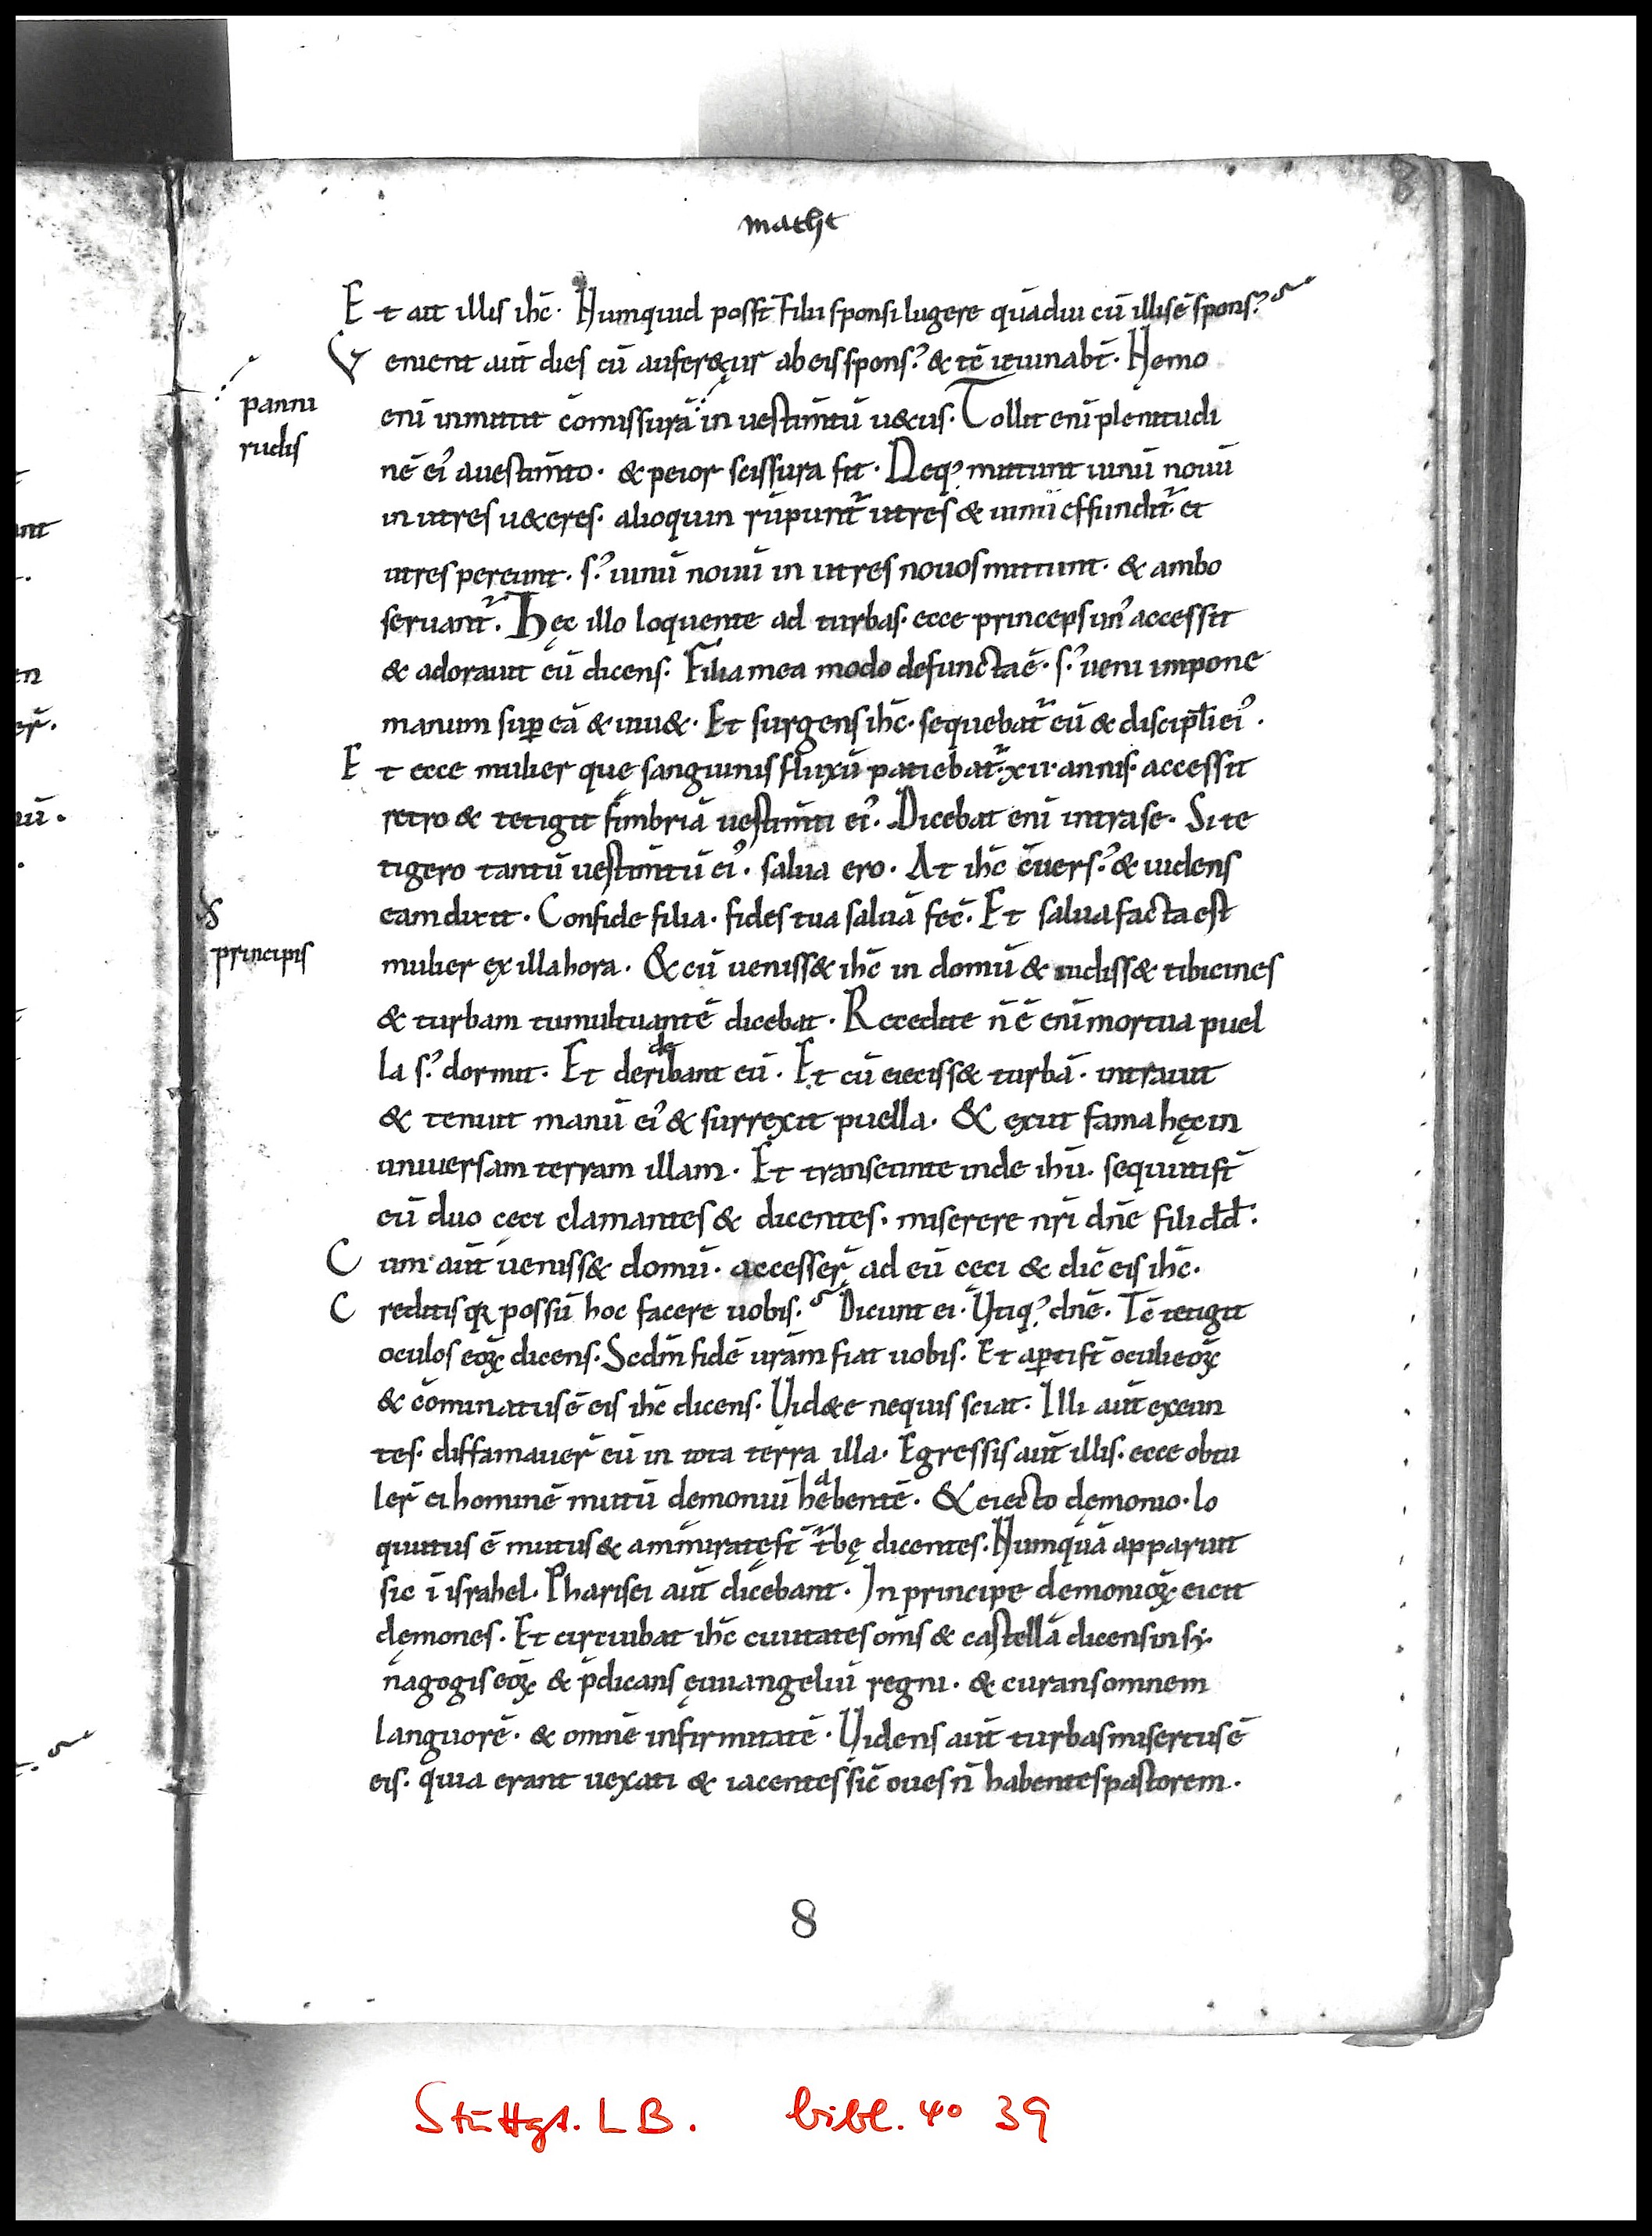 8
matht
Et ait illis ihc̄. Numquid poss̄t filii sponsi lugere quādiu cū illis ē spons᾿?
Venient aūt dies cū auferetur ab eis spons᾿ & tē ieiunabt̄. Nemo
panni
rudis
enī inmittit cōmissurā in uestim̄tū uetus. Tollit enī plenitudi
nē ei᾿ a uestim̄to. & peior scissura fit. Neq᾿ mittunt uinū nouū
in utres ueteres. alioquin rūpunt᷑ utres & uinū effundit᷑ et
utres pereunt. s᾿ uinū nouū in utres nouos mittunt. & ambo
seruant᷑. Hęc illo loquente ad turbas. ecce princeps un᾿ accessit
& adorauit eū dicens. Filia mea modo defuncta ē. s᾿ ueni impone
manum suꝑ eā & uiuet. Et surgens ihc̄. sequebat᷑ eū & discipl̄i ei᾿.
Et ecce mulier quę sanguinis fluxū patiebat᷑ xii annis. accessit
retro & tetigit fimbriā uestim̄ti ei᾿. Dicebat enī intra se. Si te
tigero tantū uestim̄tū ei᾿. salua ero. At ihc̄ c̄uers᾿ & uidens
eam dixit. Confide filia. fides tua saluā fec̄. Et salua facta est
principis
mulier ex illa hora. & cū uenisset ihc̄ in domū & uidisset tibicines
& turbam tumultuantē dicebat. Recedite n̄ ē enī mortua puel
la s᾿ dormit. Et deridebant eū. Et cū eiecisset turbā. intrauit
& tenuit manū ei᾿ & surrexit puella. & exiit fama hęc in
uniuersam terram illam. Et transeunte inde ihū. sequuti st̄
eū duo cęci clamantes & dicentes. miserere nr̄i dn̄e fili dd̄.
Cum aūt uenisset domū. accesser̄ ad eū cęci & dic̄ eis ihc̄.
Creditis qꝛ possū hoc facere uobis? Dicunt ei. Utiq᾿ dn̄e. Tē tetigit
oculos eoꝝ dicens. Scdm̄ fidē ur̄am fiat uobis. Et aꝑti st̄ oculi eoꝝ
& cōminatus ē eis ihc̄ dicens. Videte ne quis sciat. Illi aūt exeun
tes. diffamauer̄ eū in tota terra illa. Egressis aūt illis. ecce obtu
ler̄ ei hominē mutū demoniū habentē. & eiecto dęmonio. lo
quutus ē mutus & ammiratę st̄ t᷑bę dicentes. Numquā apparuit
sic ī israhel. Pharisei aūt dicebant. In principe demonioꝝ eicit
dęmones. Et circuibat ihc̄ ciuitates om̄s & castella dicens in sy
nagogis eoꝝ & p̄dicans ęuuangeliū regni. & curans omnem
languorē. & omnē infirmitatē. Videns aūt turbas misertus ē
eis. quia erant uexati & iacentes sic̄ oues n̄ habentes pastorem.
8
Stuttgt. LB. bibl. 4o 39